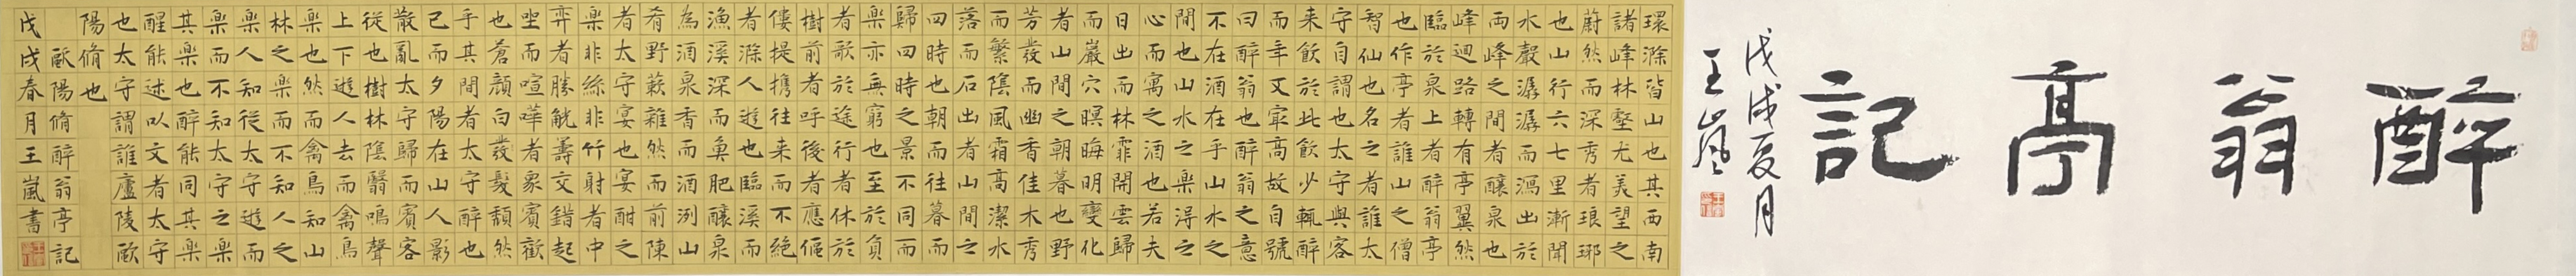 醉翁亭記
戊戌夏月
王嵐
環滁皆山也其西南
諸峰林壑尤美望之
蔚然而深秀者琅琊
也山行六七里漸聞
水聲潺潺而瀉出於
兩峰之間者釀泉也
峰迴路轉有亭翼然
臨於泉上者醉翁亭
也作亭者誰山之僧
智仙也名之者誰太
守自謂也太守與客
来飲於此飲少輒醉
而年又最高故自號
曰醉翁也醉翁之意
不在酒在乎山水之
間也山水之樂得之
心而寓之酒也若夫
日出而林霏開雲歸
而巖穴暝晦明變化
者山間之朝暮也野
芳發而幽香佳木秀
而繁陰風霜高潔水
落而石出者山間之
四時也朝而往暮而
歸四時之景不同而
樂亦無窮也至於負
者歌於途行者休於
樹前者呼後者應傴
僂提携往来而不絕
者滁人遊也臨溪而
漁溪深而魚肥釀泉
為酒泉香而酒洌山
肴野蔌雜然而前陳
者太守宴也宴酣之
樂非絲非竹射者中
弈者勝觥籌交錯起
坐而喧嘩者眾賓歡
也蒼顏白發髮頹然
手其間者太守醉也
已而夕陽在山人影
散亂太守歸而賓客
從也樹林陰翳鳴聲
上下遊人去而禽鳥
樂也然而禽鳥知山
林之樂而不知人之
樂人知從太守遊而
樂而不知太守之樂
其樂也醉能同其樂
醒能述以文者太守
也太守謂誰廬陵歐
陽脩也
歐陽脩醉翁亭記
戊戌春月王嵐書